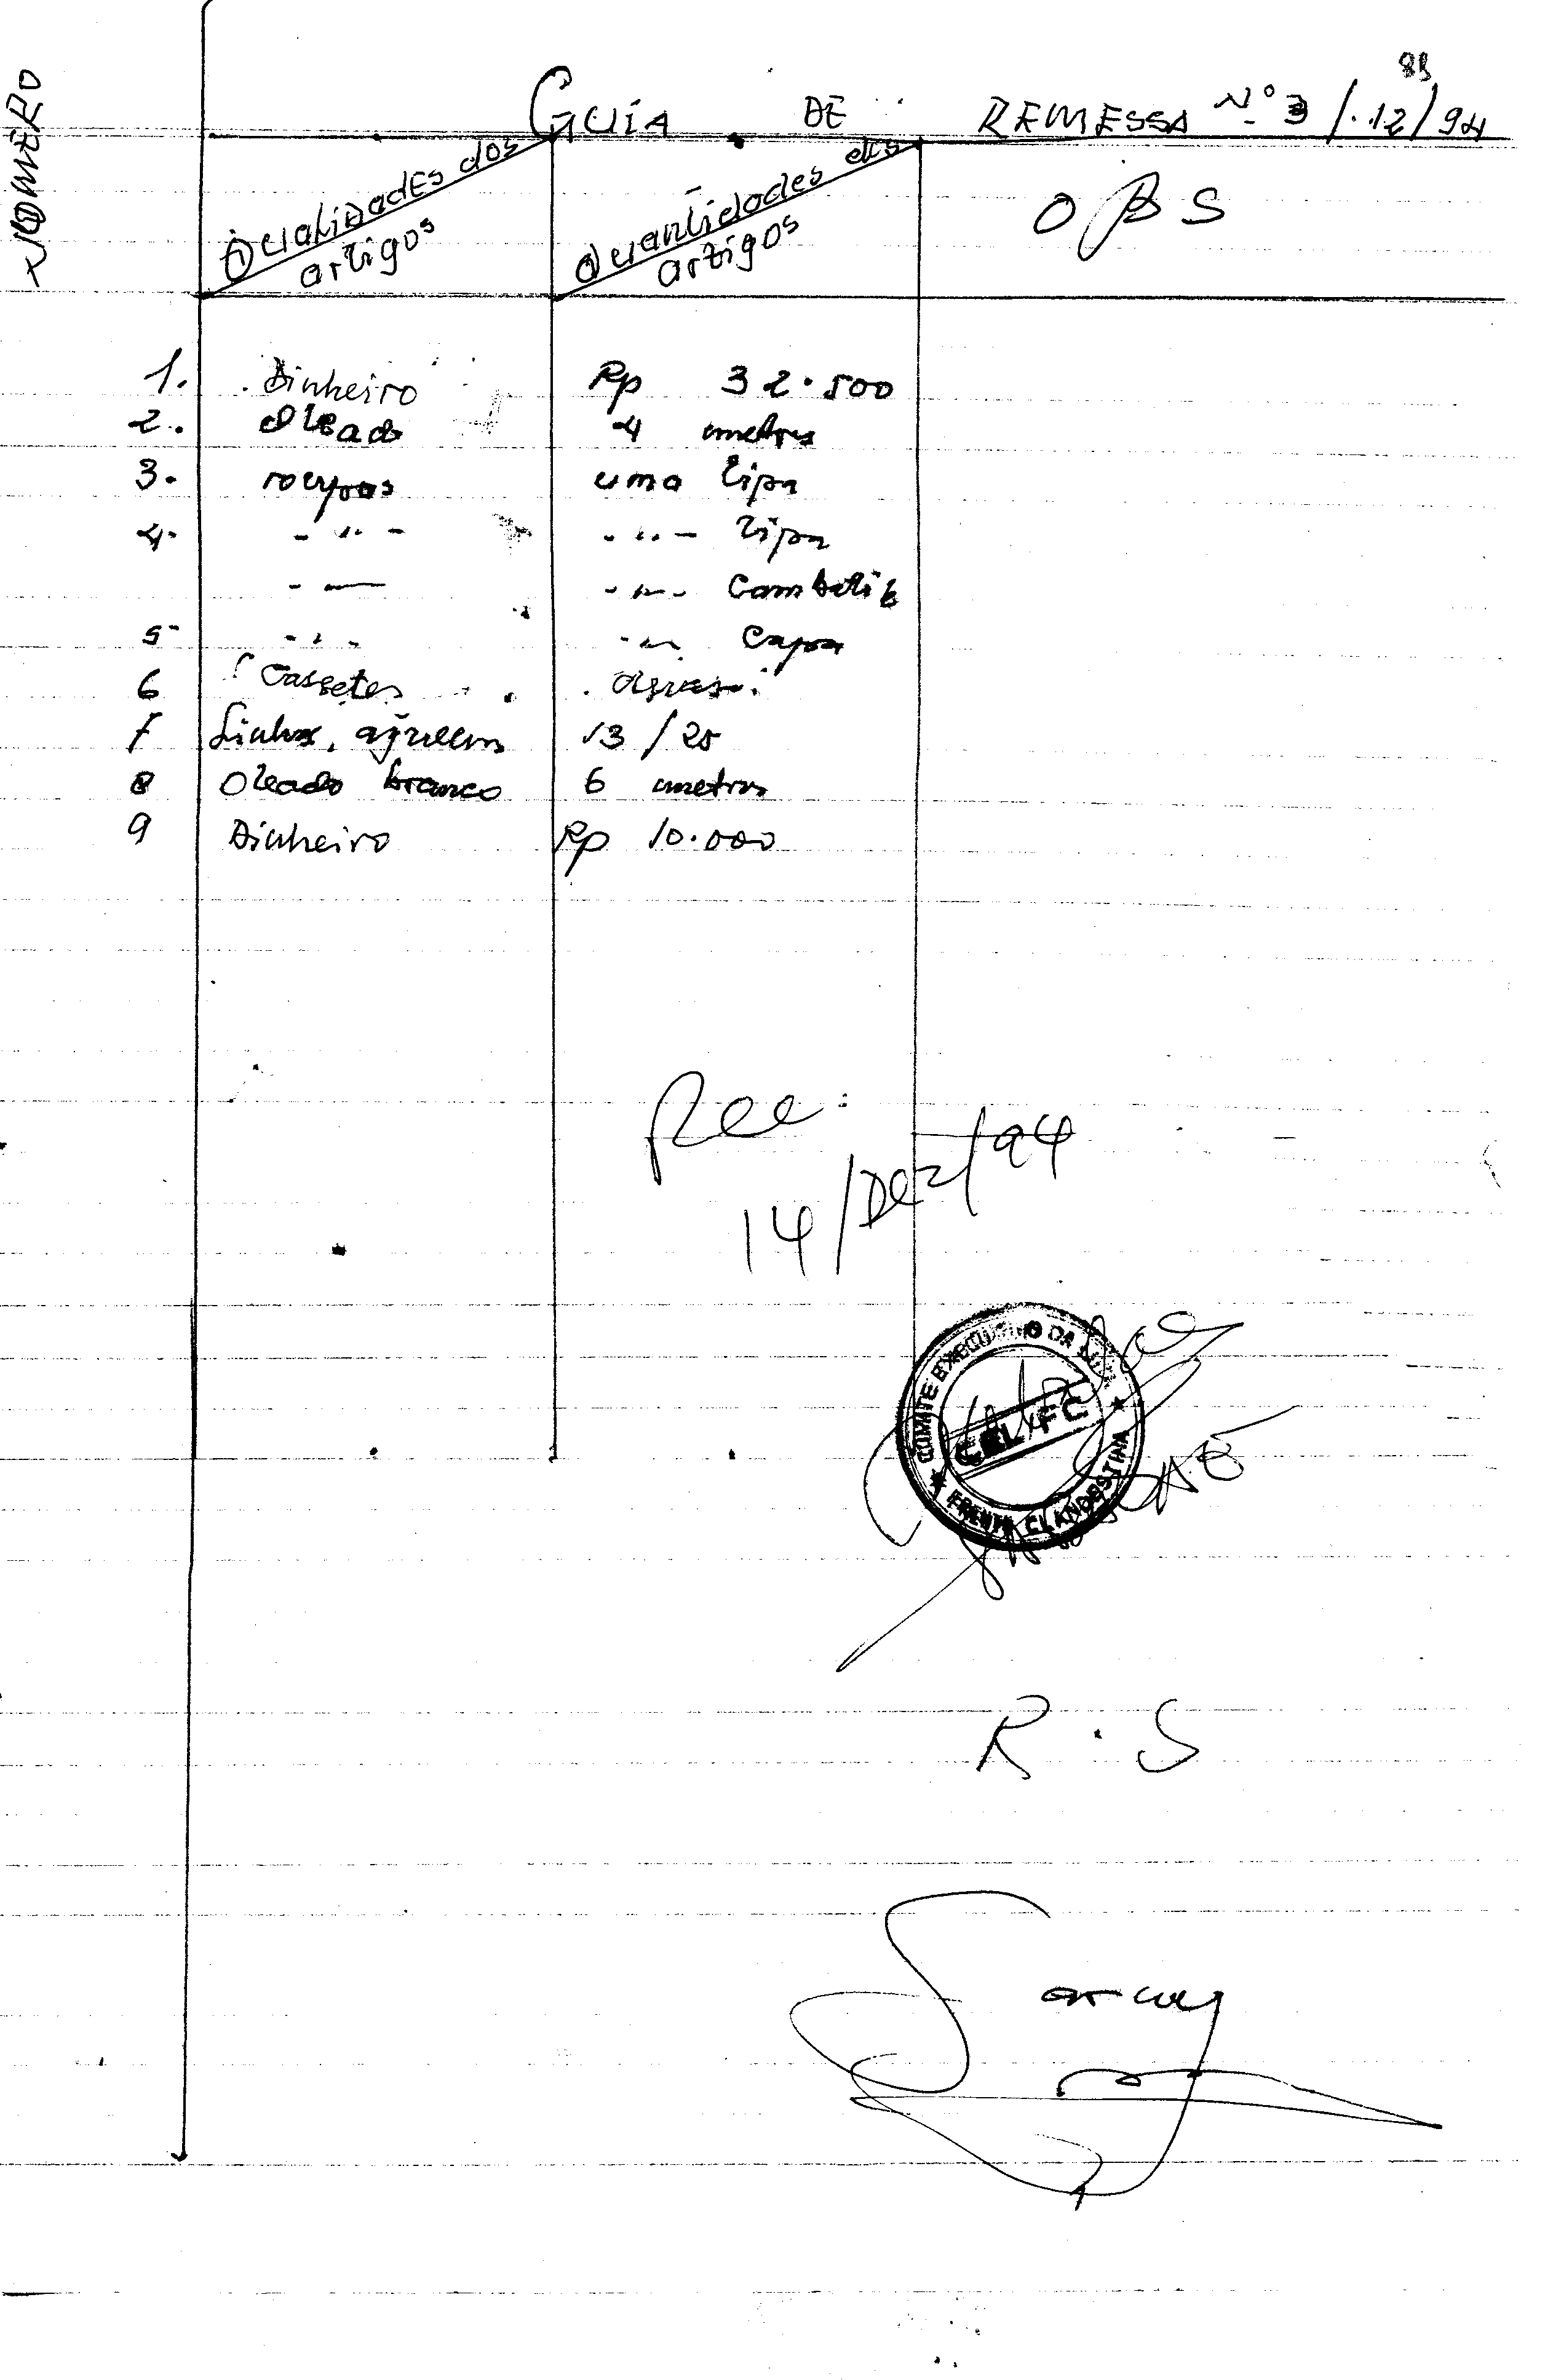 89
GUIA DE REMESSA Nº 3/.12/94
NÚMERO
Qualidades dos artigos
Quantidades dos artigos
OBS
1. Dinheiro Rp 32.500
2. Oleado 4 metros
3. roupas uma Zipa
4. - " - - " - Zipa
- — - " - Cambatik
5 - " - - " - Capa
6 Cassetes duas
7 Linhas, agulhas 13/20
8 Oleado branco 6 metros
9 Dinheiro Rp 10.000
Rec:
14/Dez/94
COMITE EXECUTIVO DA LUTA
CEL/FC
FRENTE CLANDESTINA
R.S